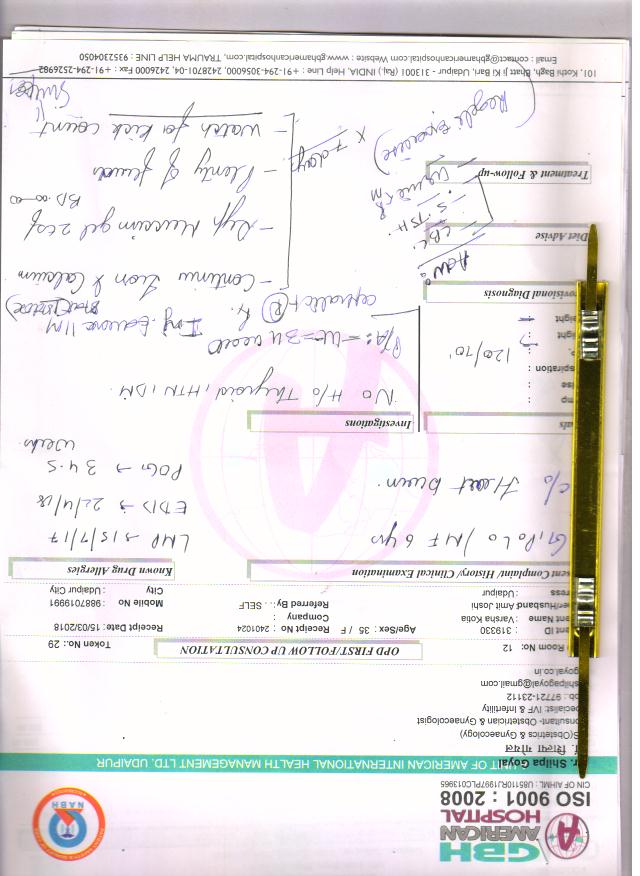 GBH
AMERICAN
HOSPITAL
ISO 9001 : 2008
CIN OF AIHML : U85110RJ1997PLC013965
NABH
A UNIT OF AMERICAN INTERNATIONAL HEALTH MANAGEMENT LTD. UDAIPUR
Dr. Shilpa Goyal
शिल्पा गोयल
(Obstetrics & Gynaecology)
onsultant- Obstetrician & Gynaecologist
pecialist: IVF & Infertility
ob.: 97721-23112
shilpagoyal@gmail.com
goyal.co.in
Room No: 12
OPD FIRST/FOLLOW UP CONSULTATION
Token No.: 29
ent ID : 319330
ent Name : Varsha Kotba
Age/Sex : 35 / F
Receipt No : 2401024
Receipt Date: 15/03/2018
er/Husband Amit Joshi
Company :
ress : Udaipur
Referred By: . SELF
Mobile No : 9887019991
City : Udaipur City
esent Complaint/ History/ Clinical Examination
Known Drug Allergies
G1P0L0 / MF 6 yrs
LMP → 15/7/17
EDD → 22/4/18
c/o Heart burn
POG → 34.5 weeks
als
Investigations
mp :
No H/O Thyroid, HTN, DM
lse :
spiration :
P. : 120/70
P/A:- Ut = 34 weeks
ight :
cephalic +
eight :
rovisional Diagnosis
Adv:
- Continue Iron & Calcium
CBC
S. TSH
Urine R/M
Diet Advise
- Syp Mucaine gel 2 tsf
BD
x 7 days
Treatment & Follow-up
- Plenty of fluids
- Watch for kick count
101, Kothi Bagh, Bhatt ji Ki Bari, Udaipur - 313001 (Raj.) INDIA, Help Line : +91-294-3056000, 2428701-04, 2426000 Fax : +91-294-2526982
Email : contact@gbhamericanhospital.com Website : www.gbhamericanhospital.com, TRAUMA HELP LINE : 9352304050